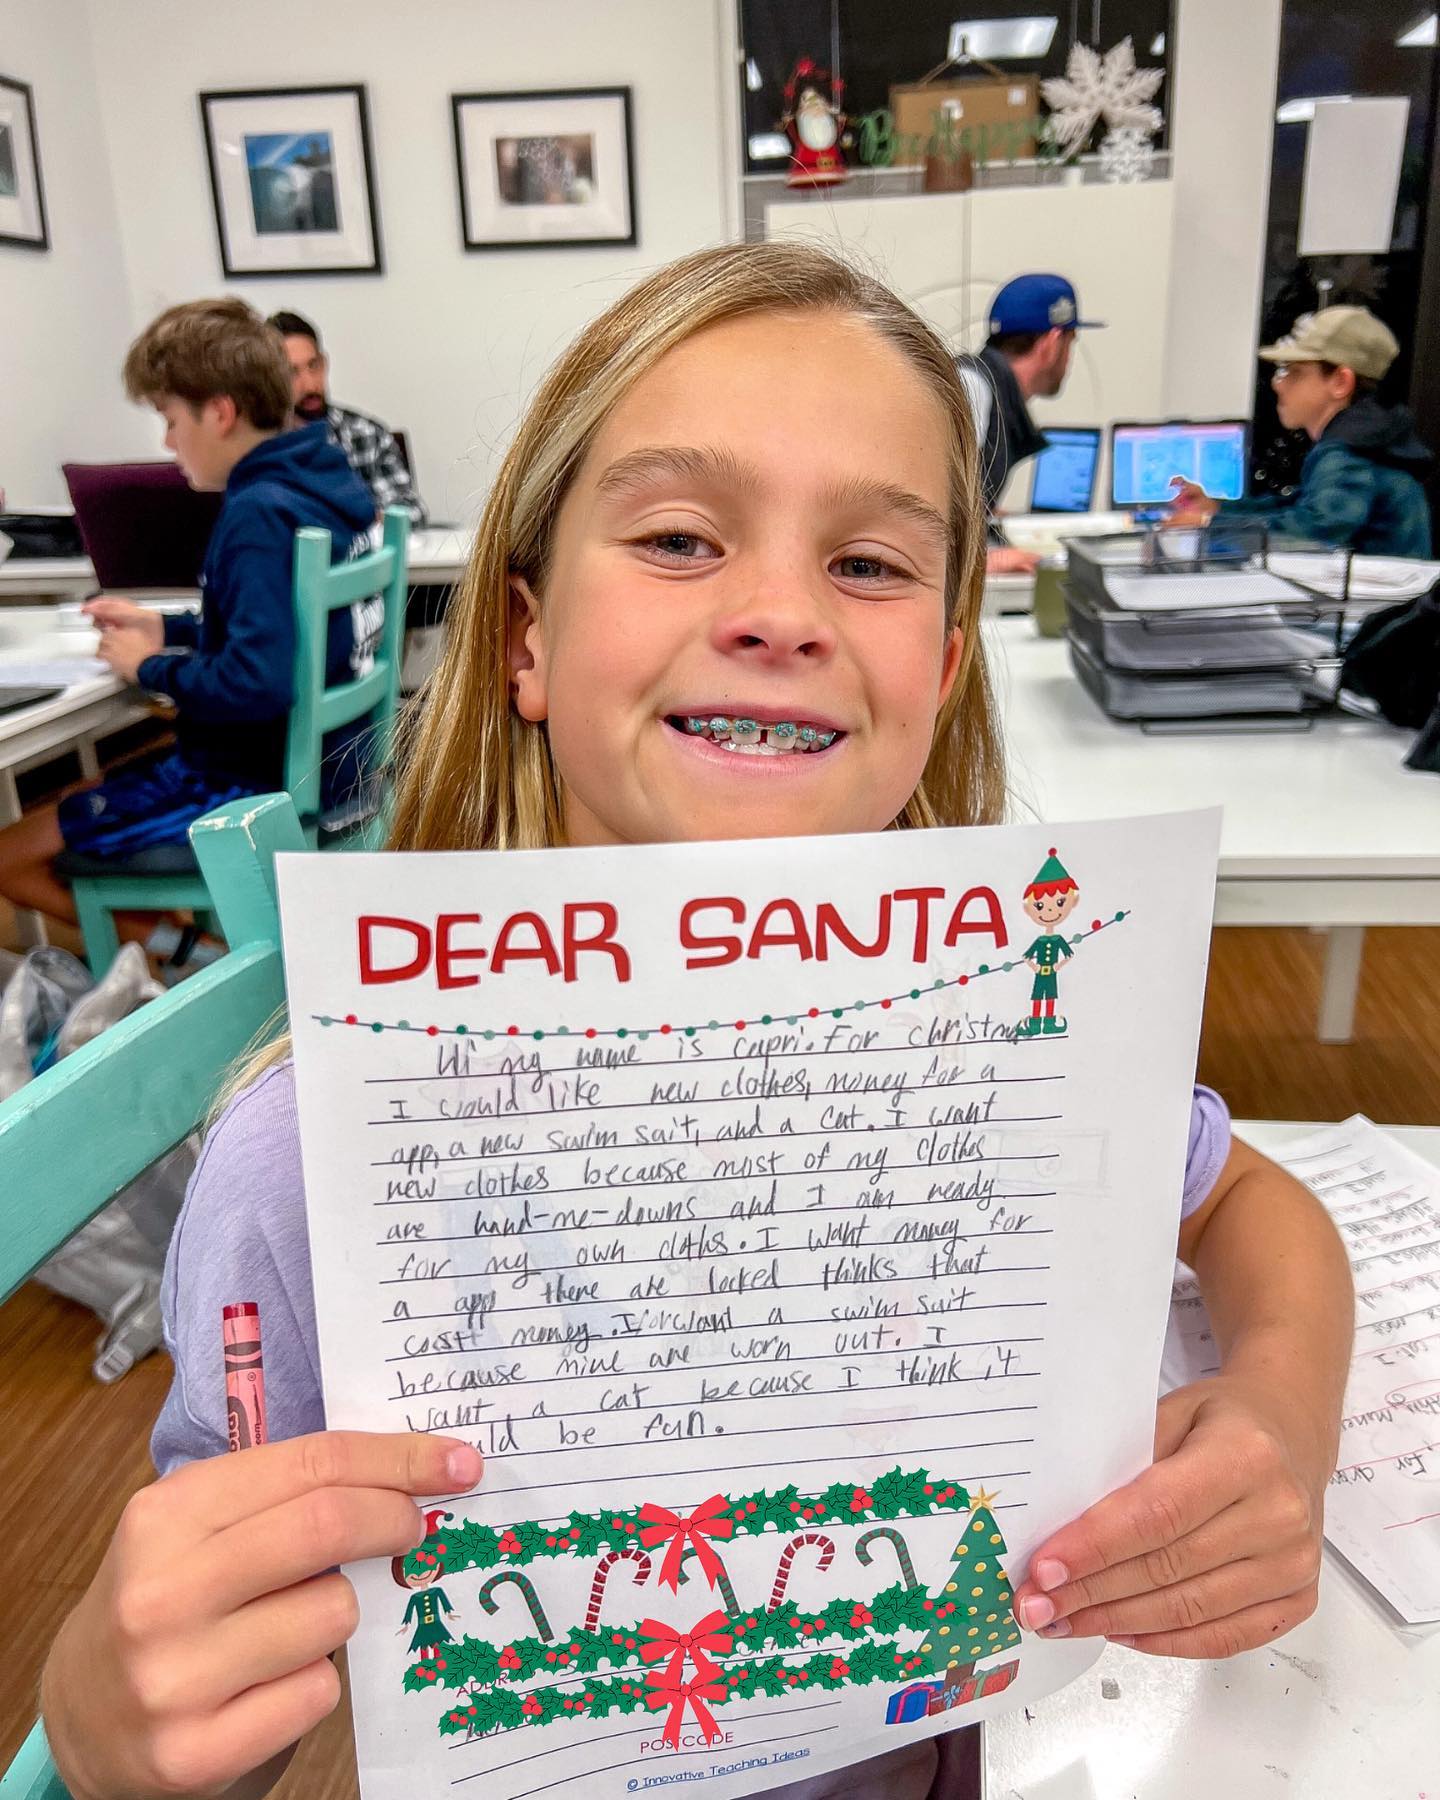 Be Happy
DEAR SANTA
Hi my name is Capri. For christmas
I would like new clothes, money for a
app, a new swim sait, and a cat. I want
new clothes because most of my clothes
are hand-me-downs and I am ready
for my own cloths. I want money for
a app there are locked thinks that
cost money. I want a swim suit
because mine are worn out. I
want a cat because I think it
would be fun.
ADDR
POSTCODE
© Innovative Teaching Ideas